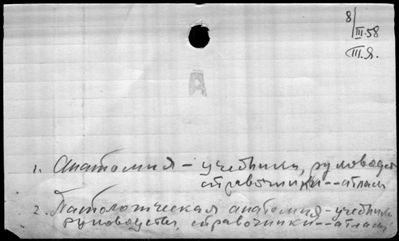 8/III.58
III.Я.
А
1. Анатомия – учебники, руководст
справочники -- атласы
2. Патологическая анатомия – учебники
руководства, справочники -- атласы